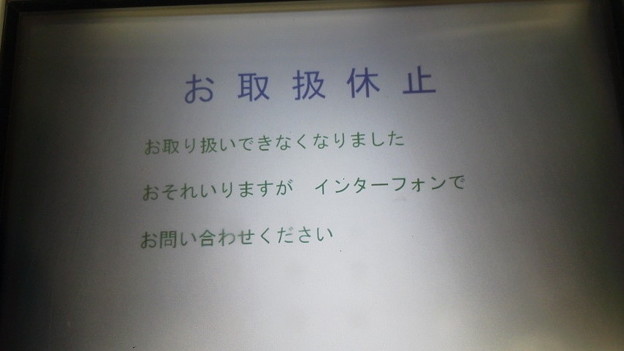 お取扱休止
お取り扱いできなくなりました
おそれいりますが　インターフォンで
お問い合わせください